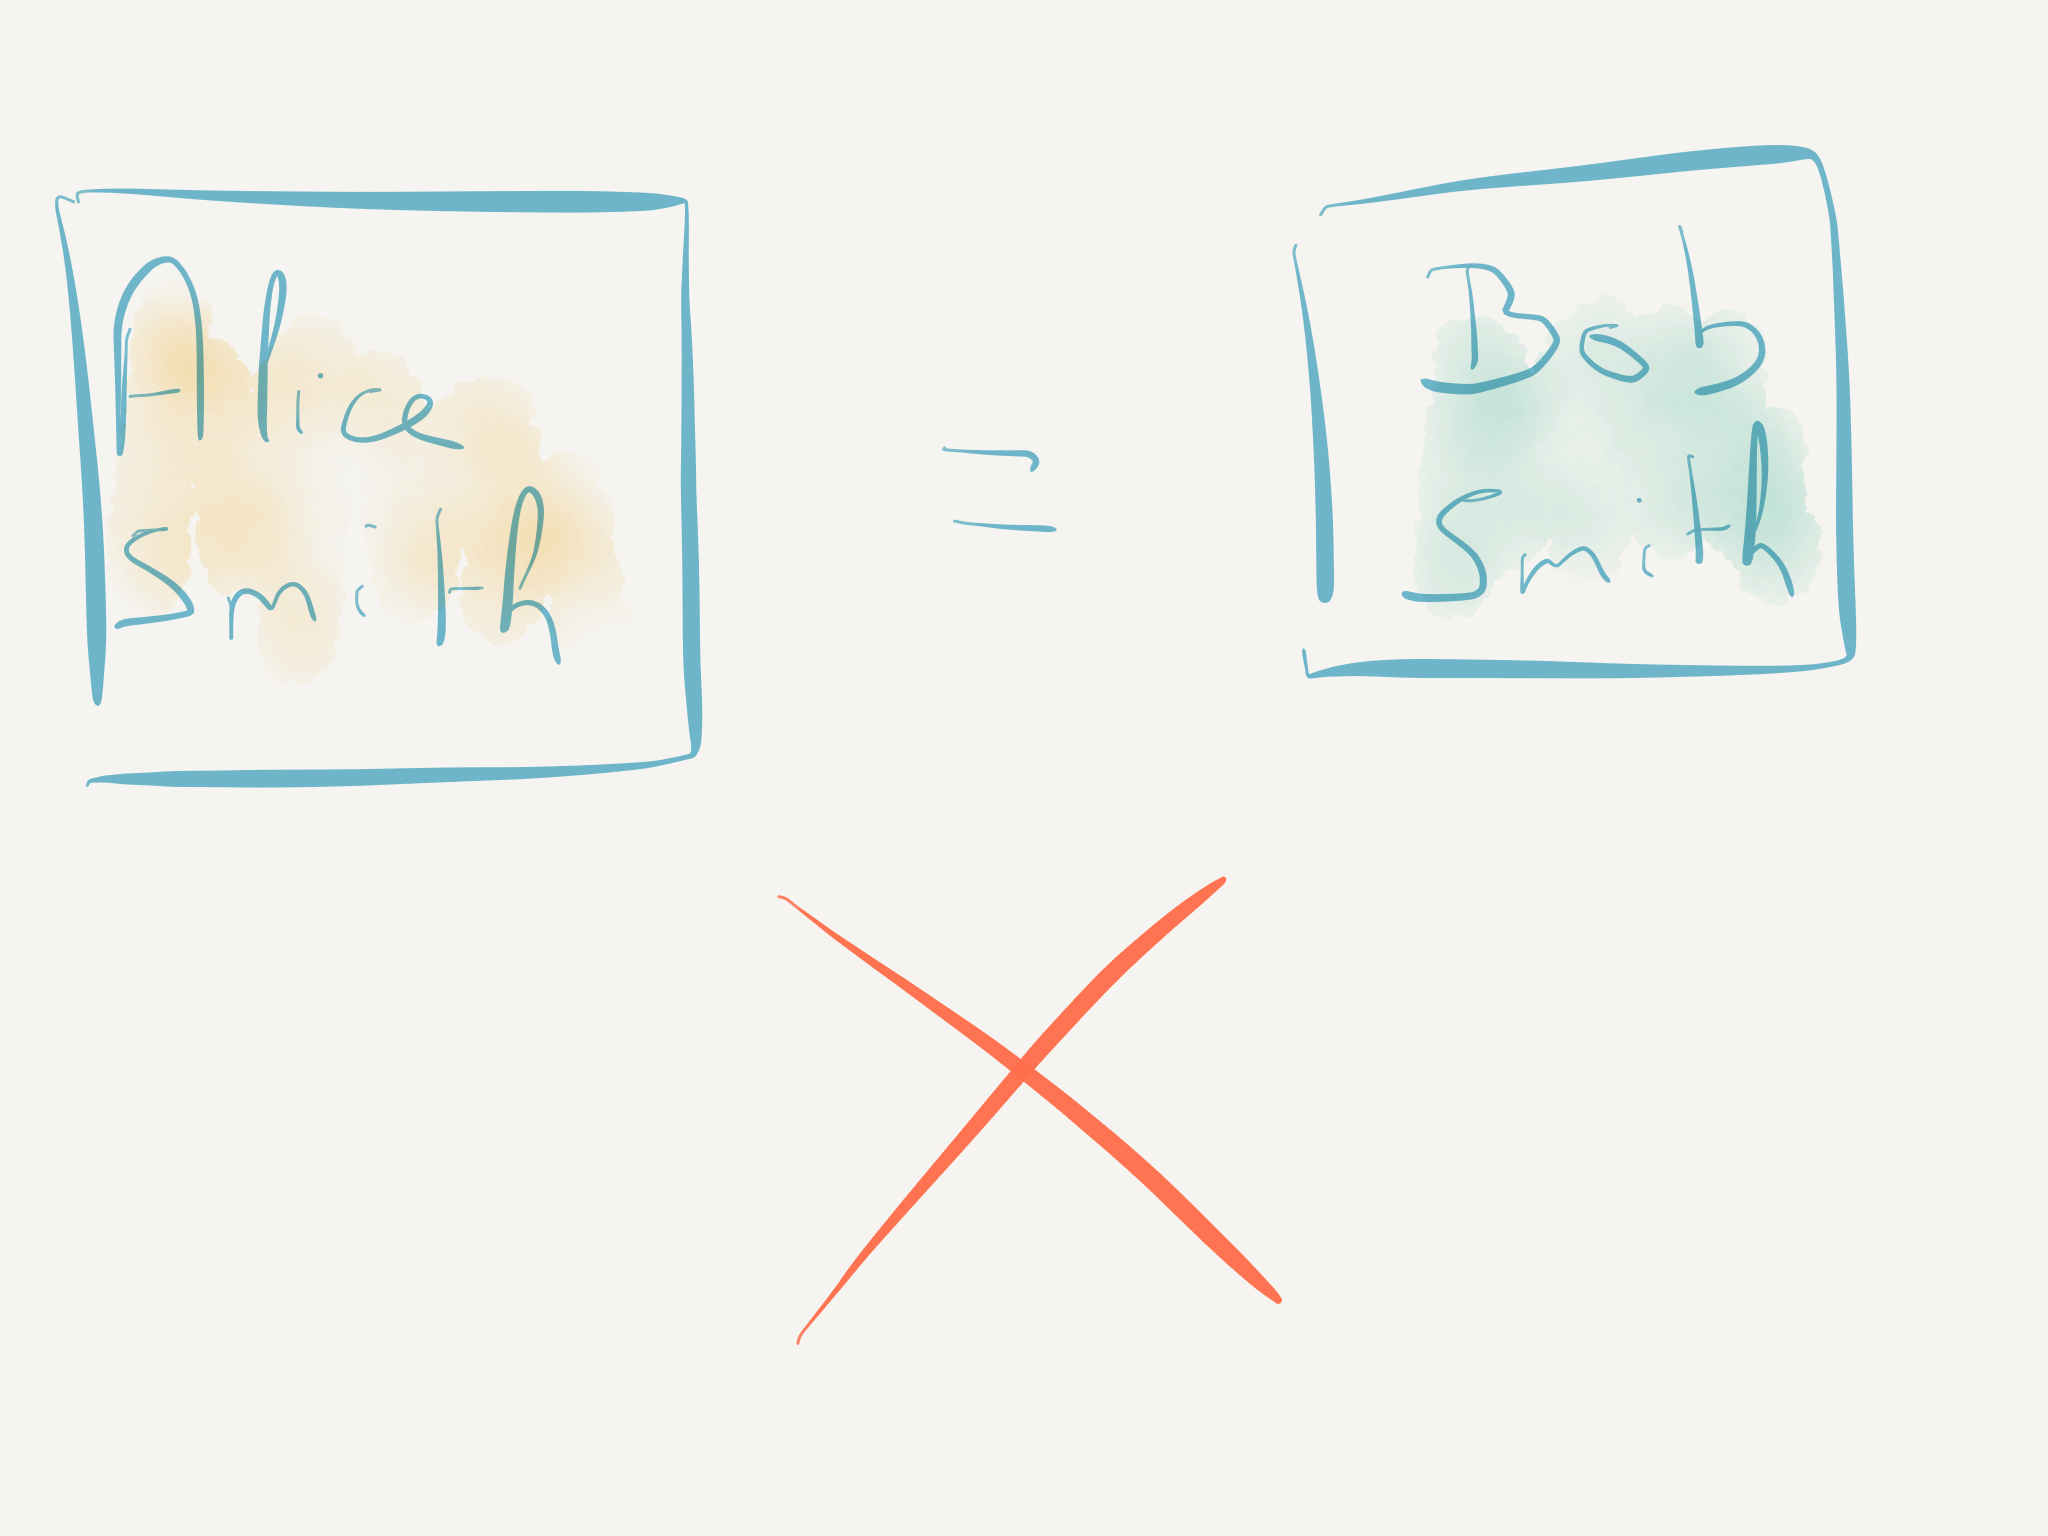 Alice
Smith
=
Bob
Smith